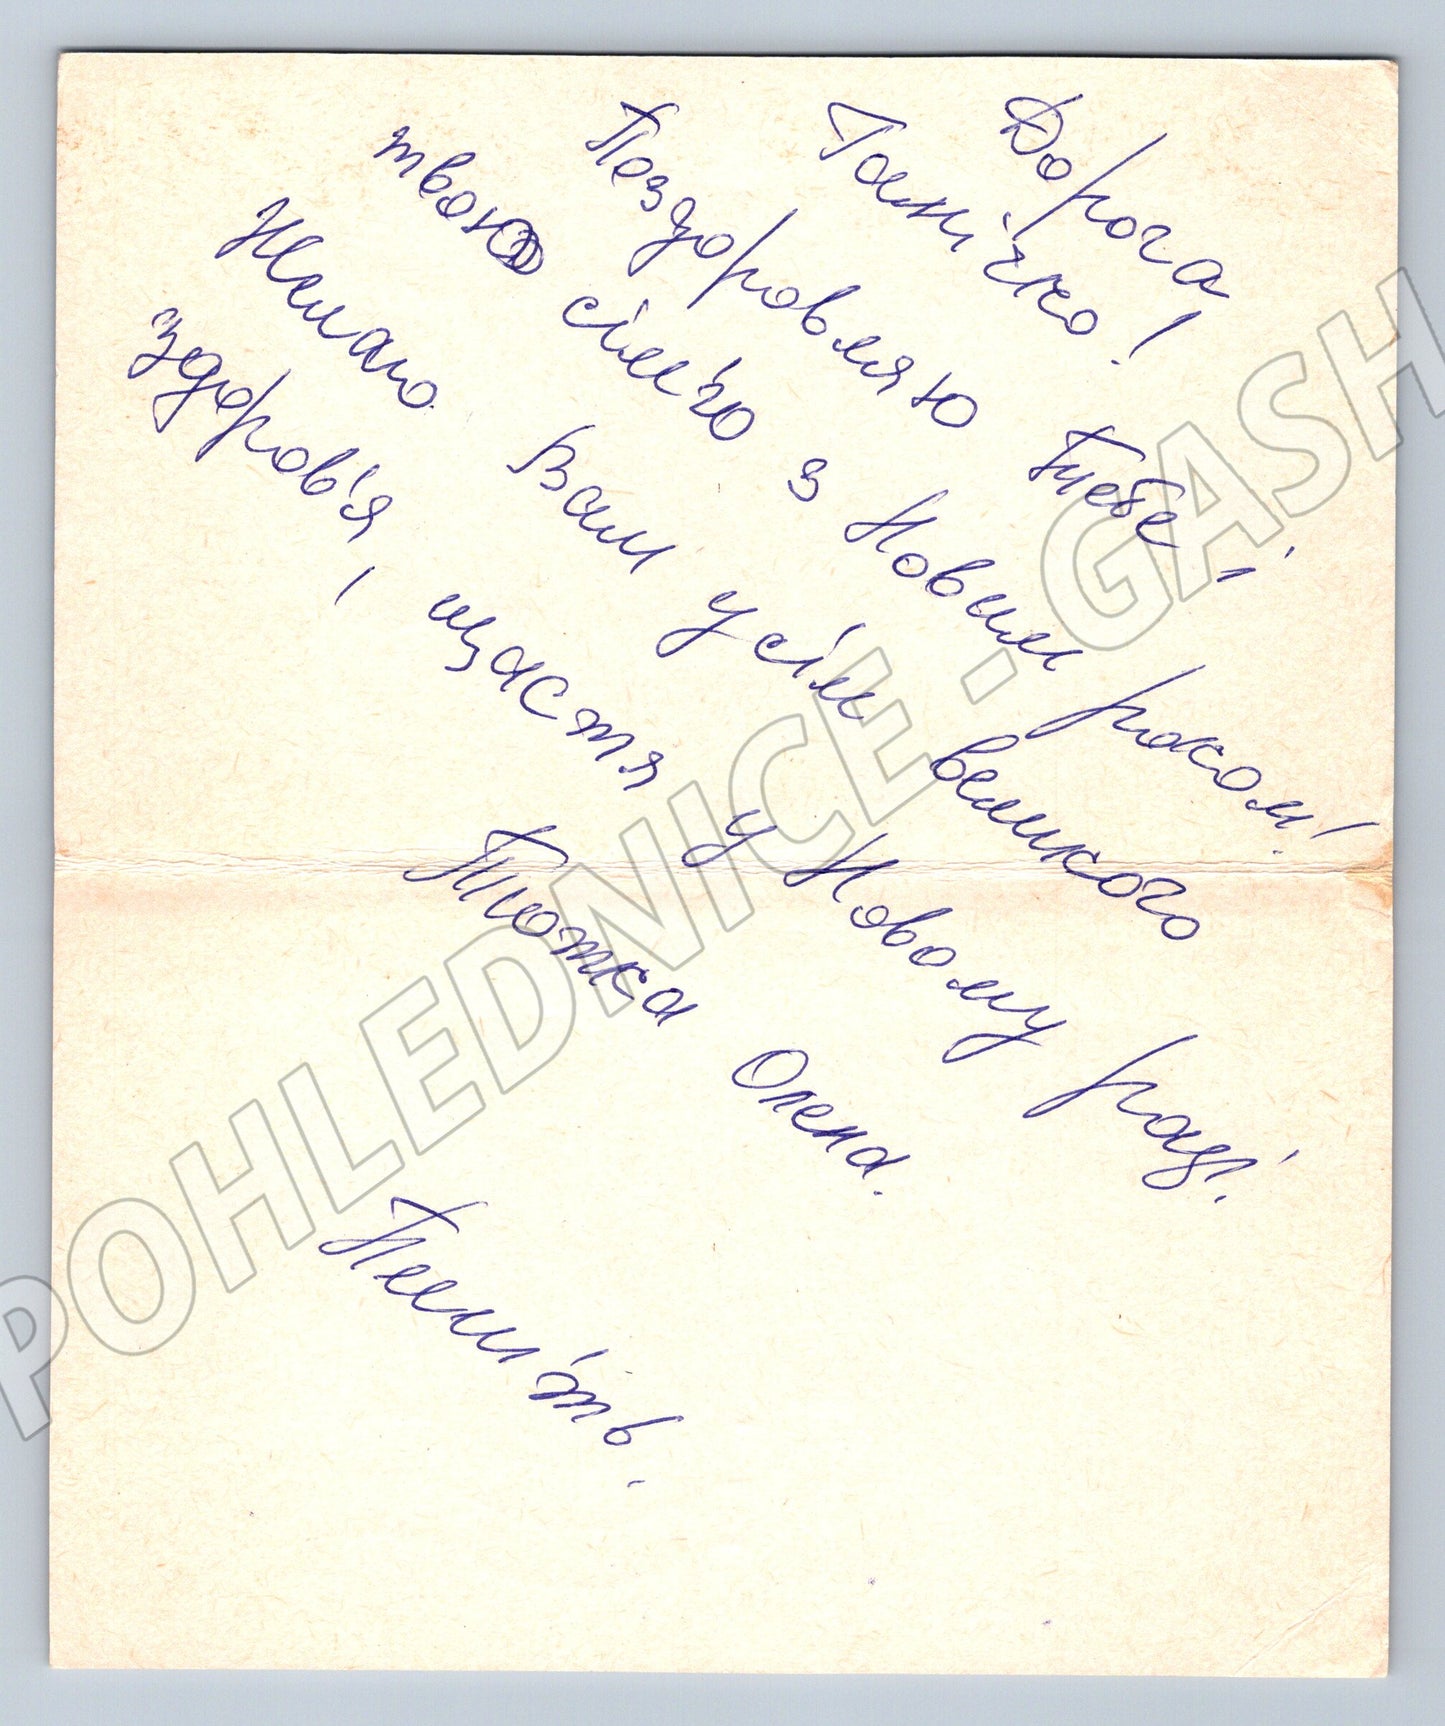 Дорога
Танічко!
Поздоровляю тебе і
твою сім'ю з Новим роком!
Желаю Вам усім великого
здоров'я, щастя у Новому році.
Тьотка Олена.
Пишіть.
POHLEDNICE - GASH